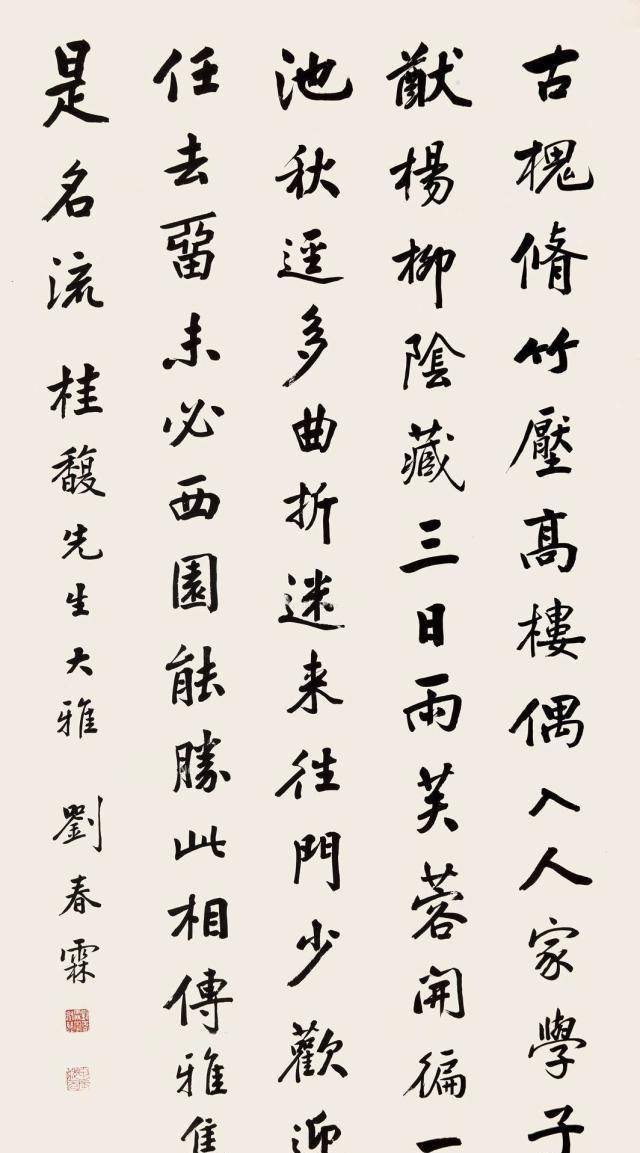 古槐脩竹壓高樓偶入人家學子
猷楊柳陰藏三日雨芙蓉開徧一
池秋逕多曲折迷来往門少歡迎
任去留未必西園能勝此相傳雅集
是名流 桂馥先生大雅 劉春霖